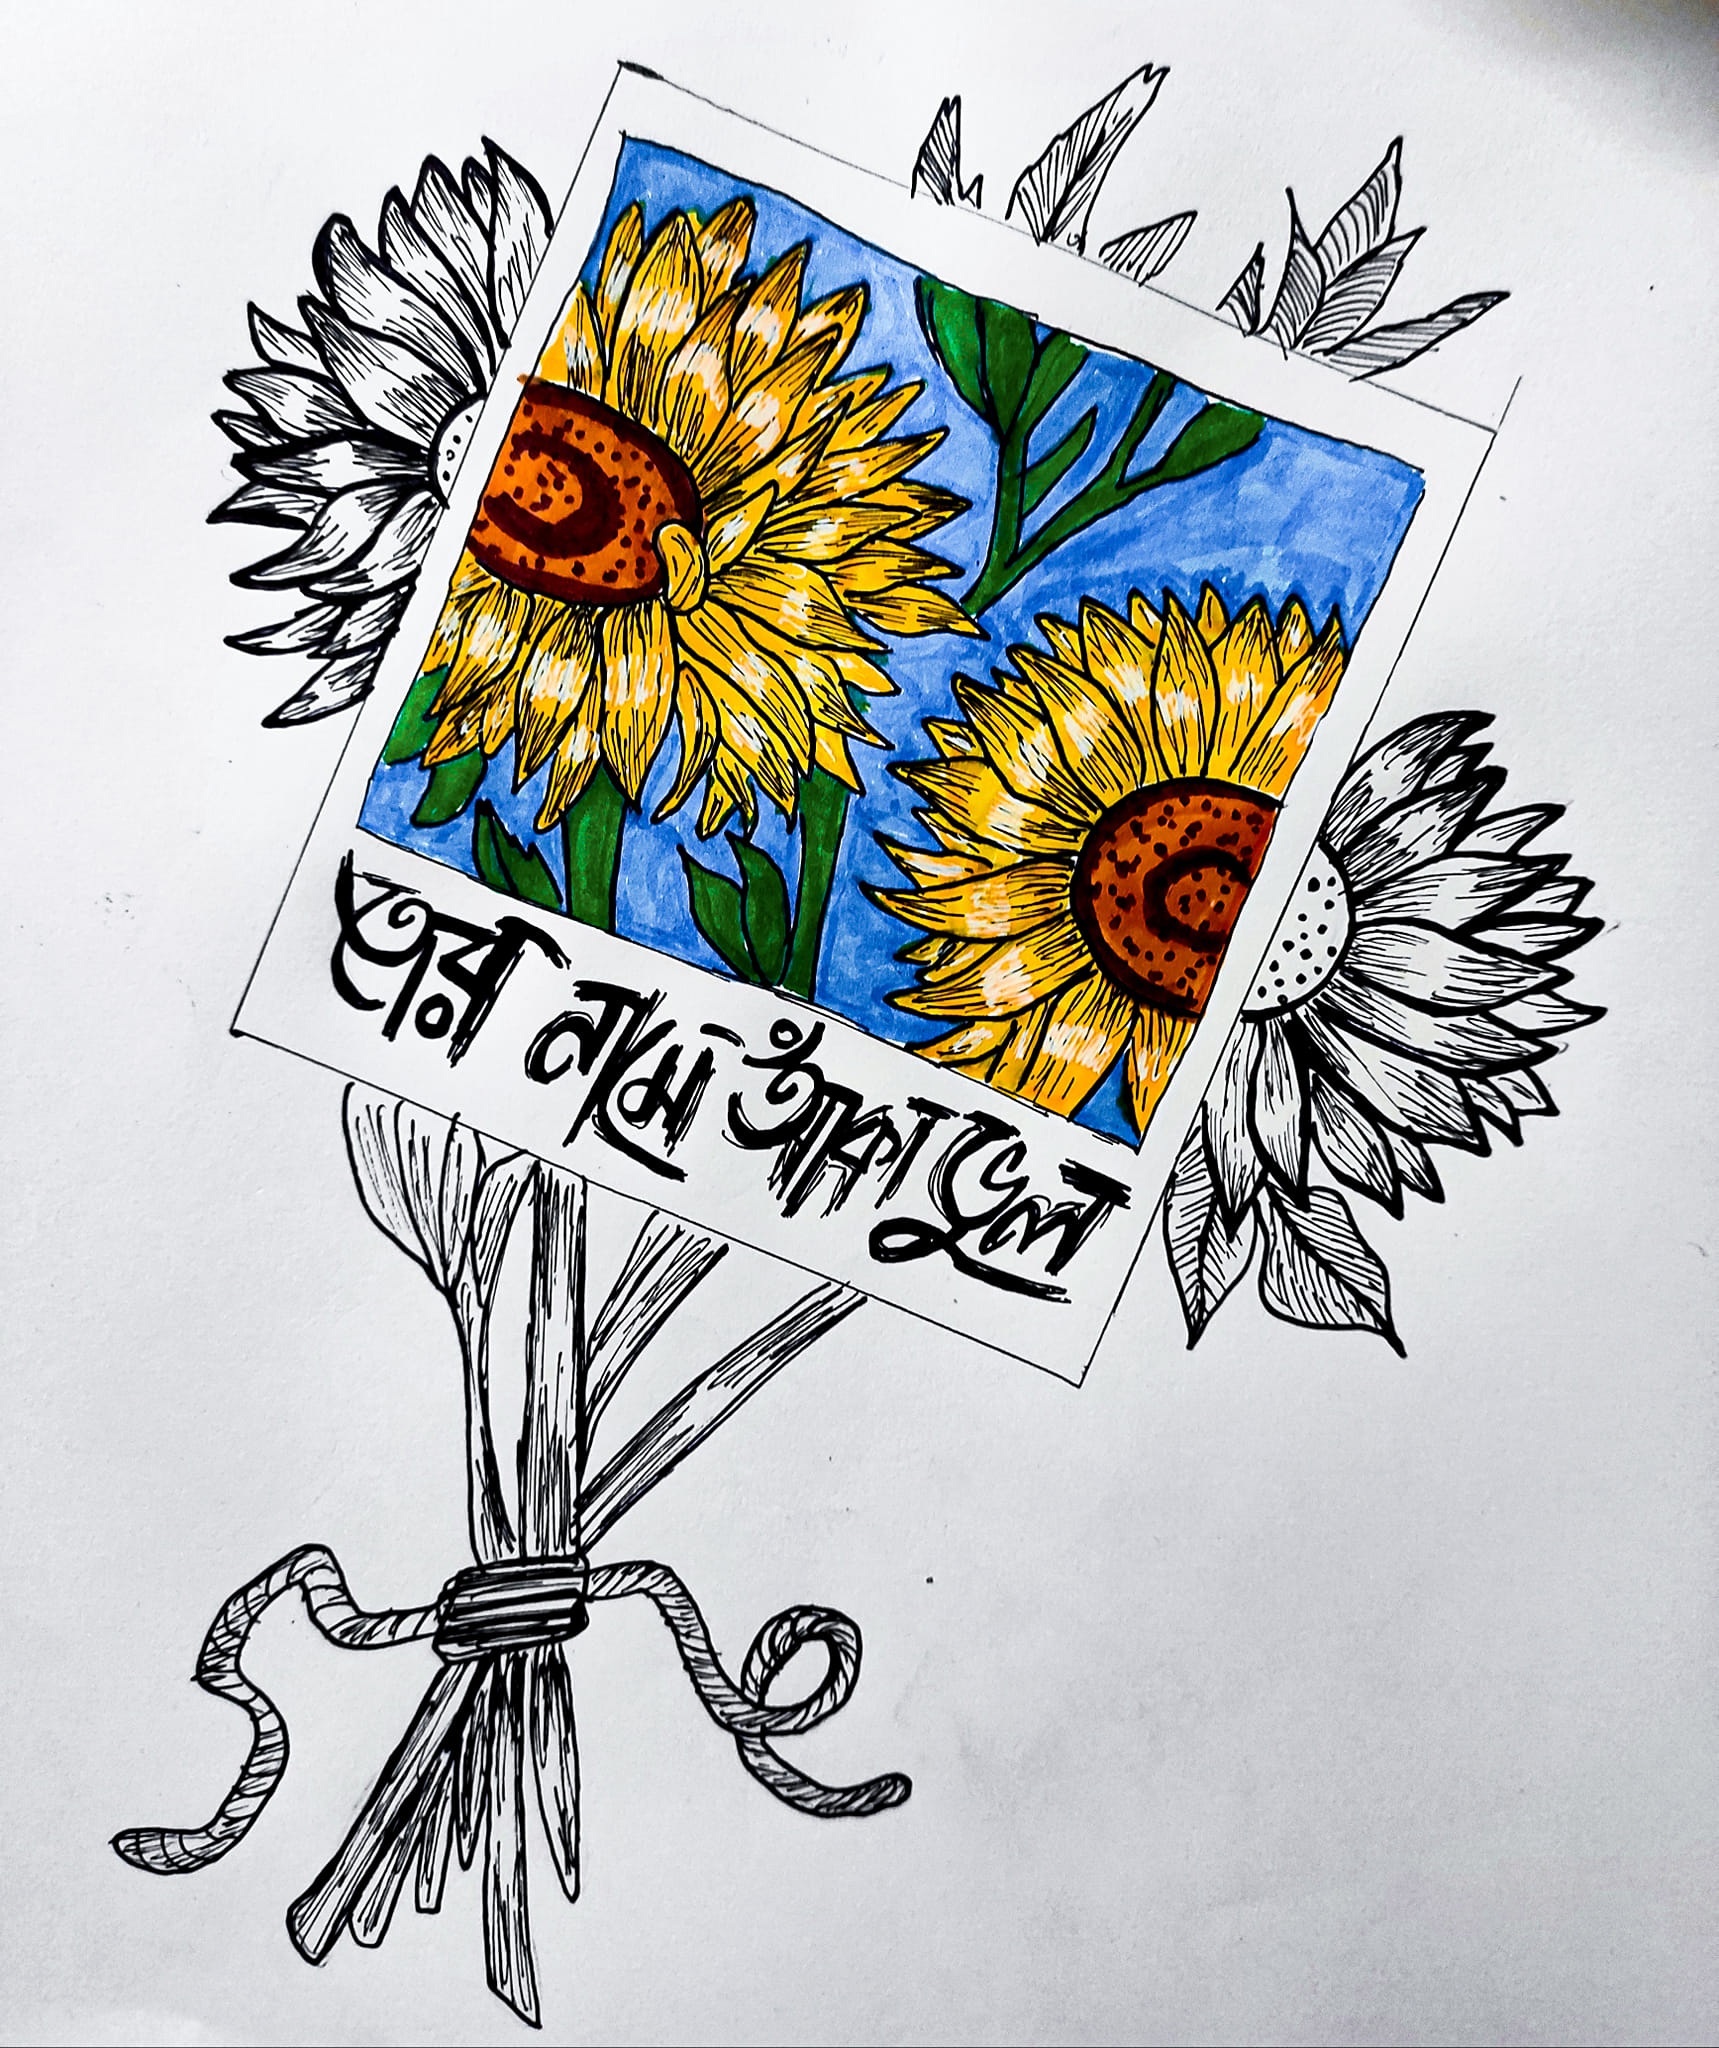 তোর নামে আঁকা ভুল